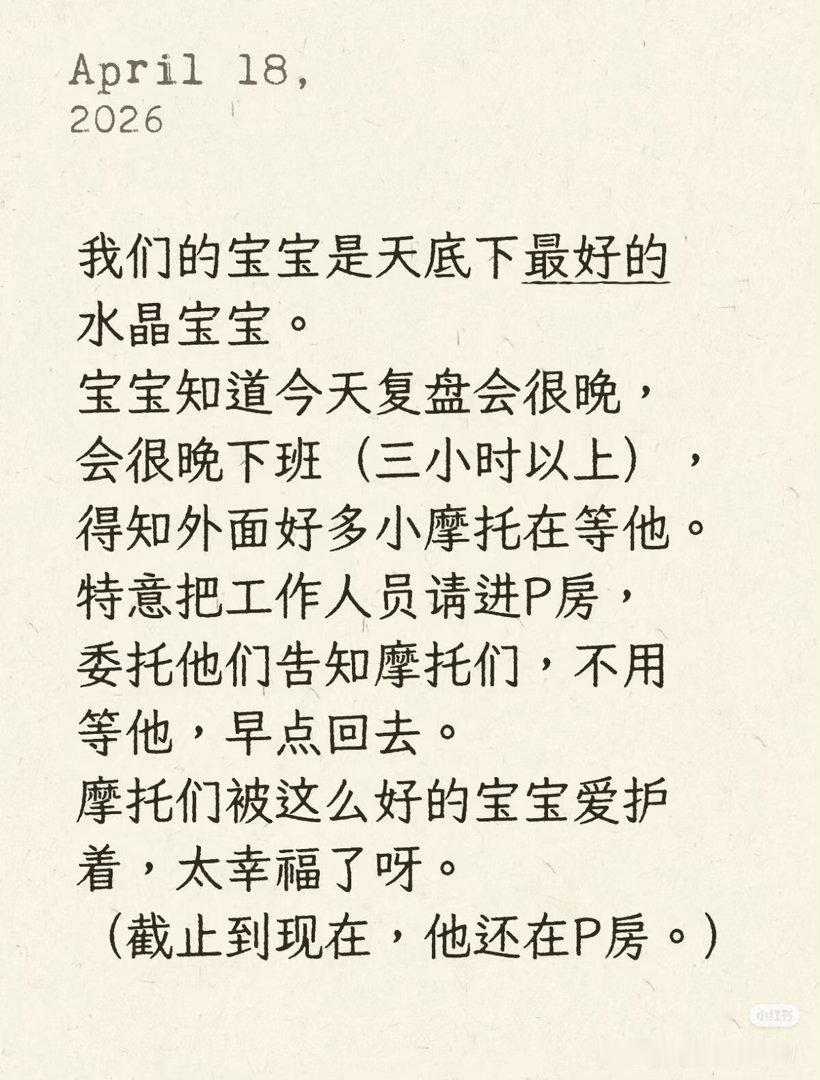 April 18,
2026
我们的宝宝是天底下最好的
水晶宝宝。
宝宝知道今天复盘会很晚，
会很晚下班（三小时以上），
得知外面好多小摩托在等他。
特意把工作人员请进P房，
委托他们告知摩托们，不用
等他，早点回去。
摩托们被这么好的宝宝爱护
着，太幸福了呀。
（截止到现在，他还在P房。）
小红书